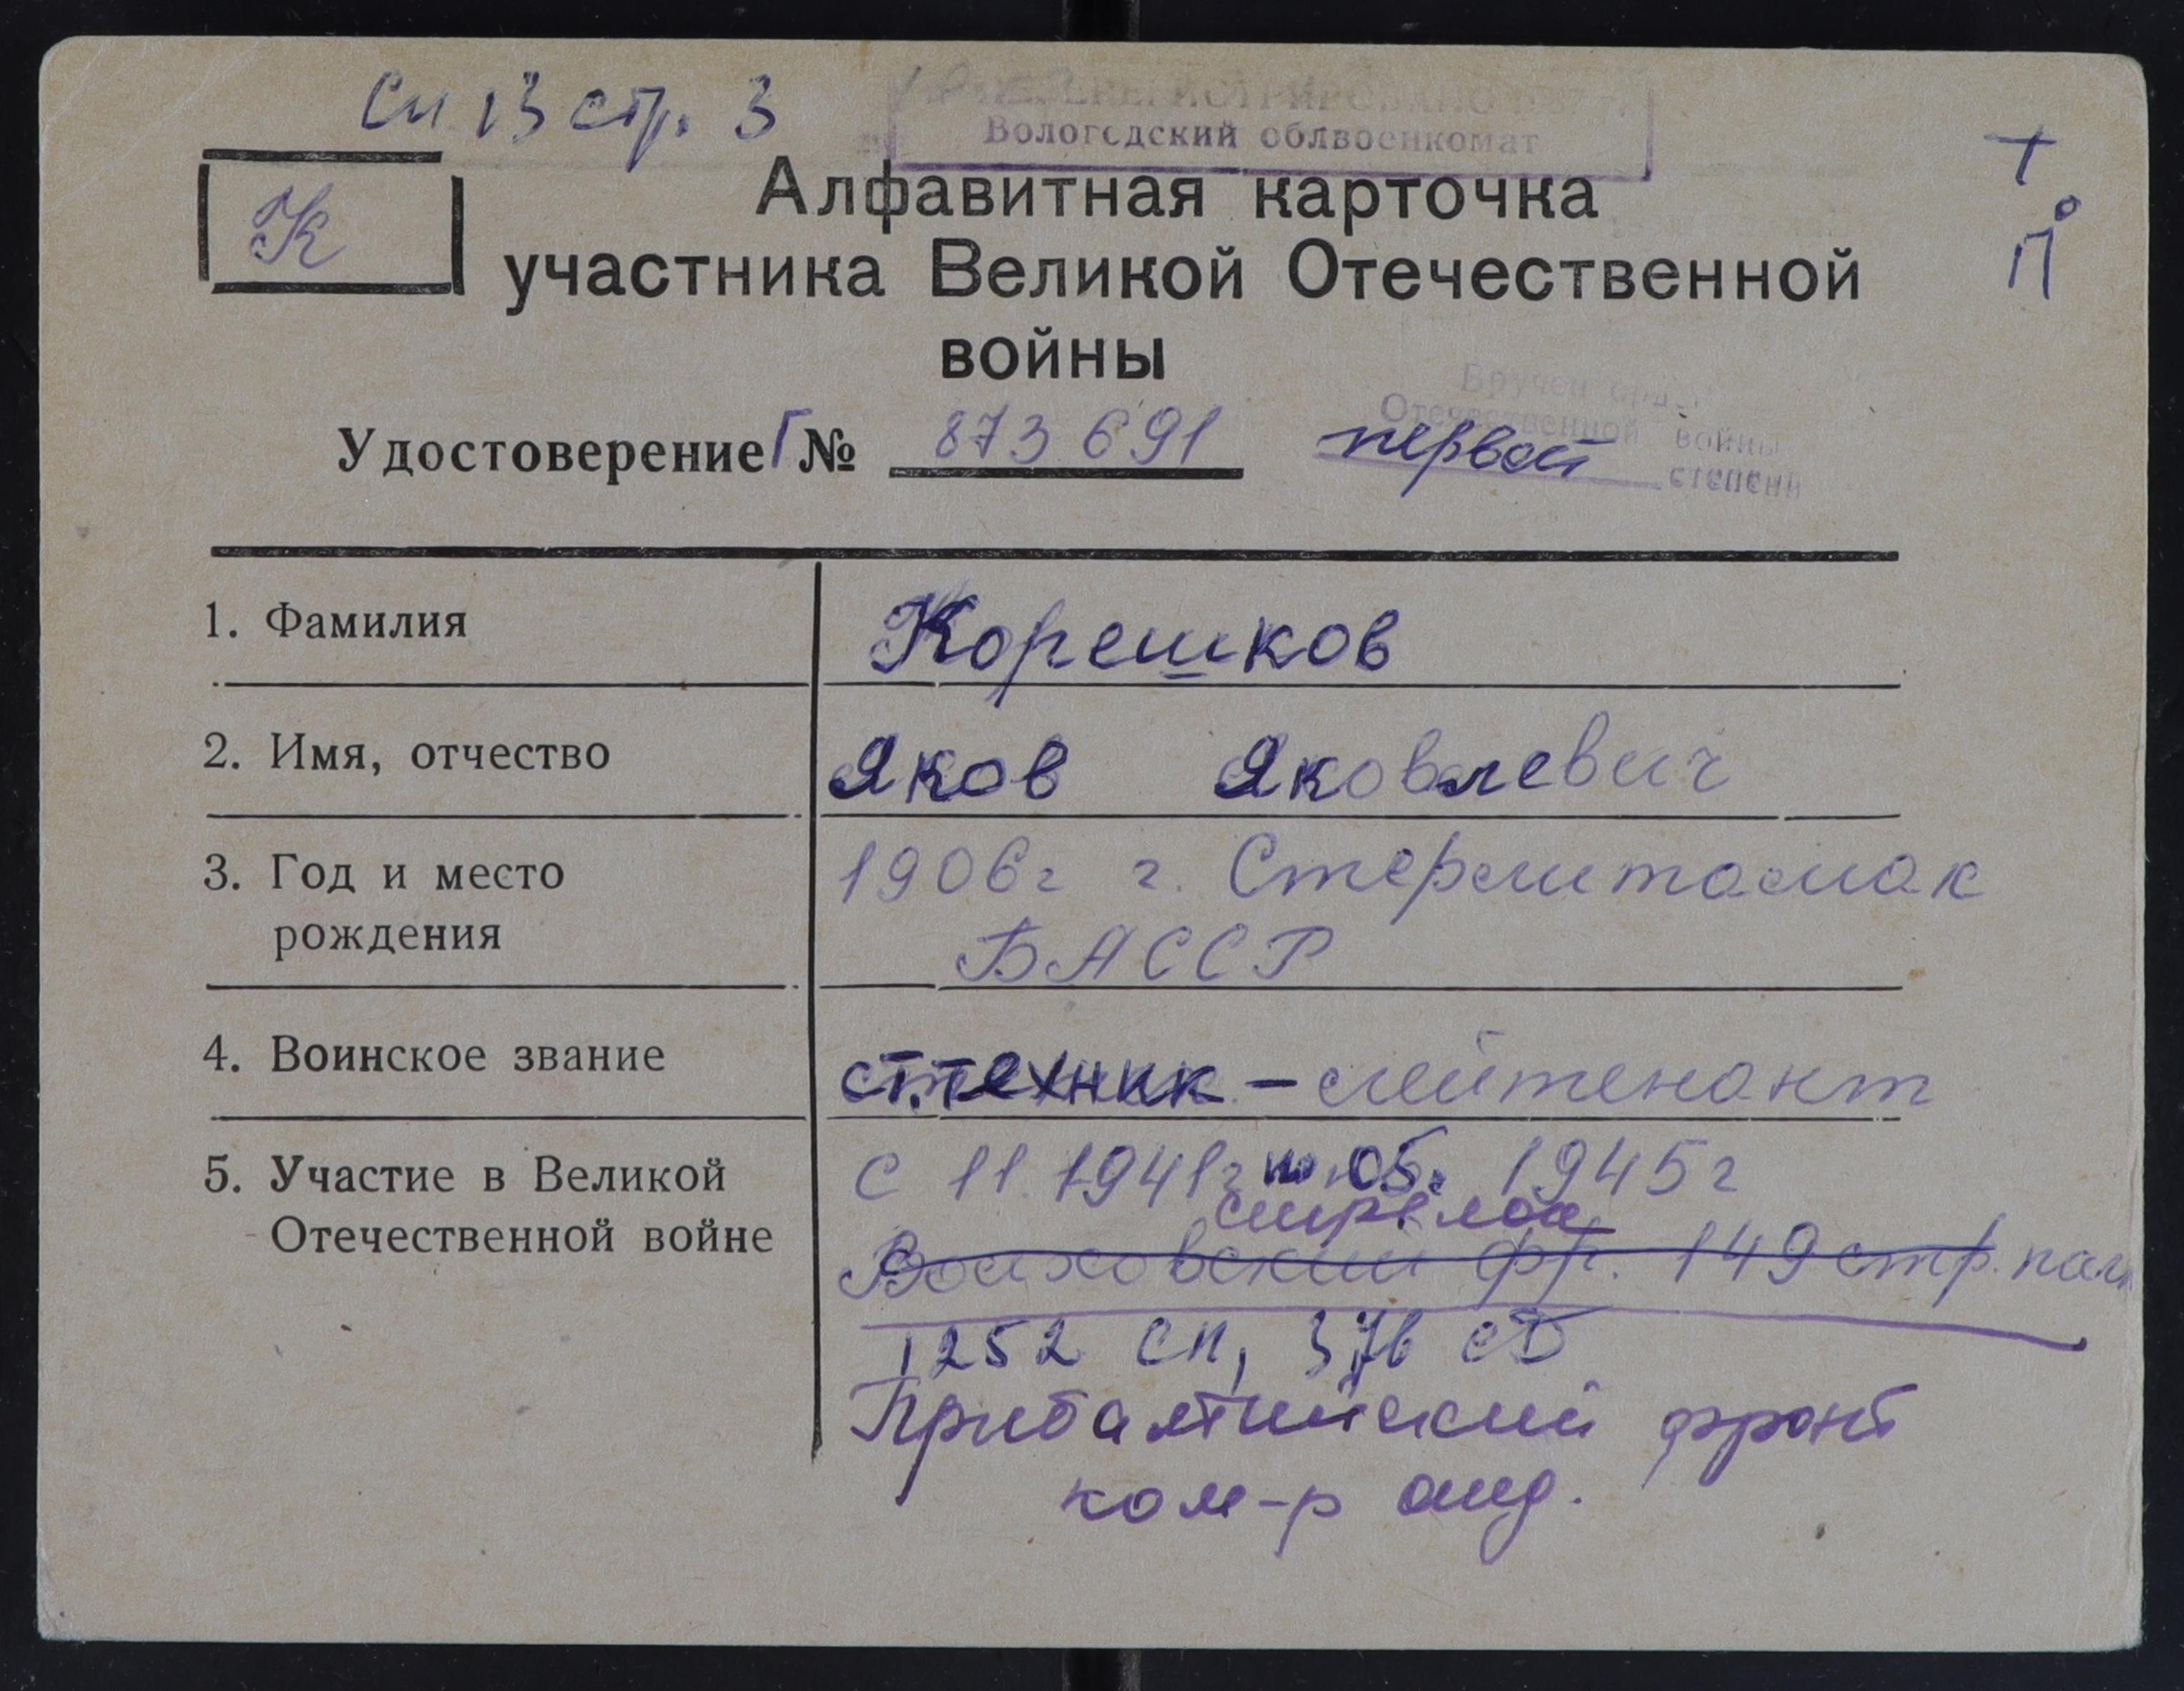 Сп 13 стр. 3
Вологодский облвоенкомат
К
Алфавитная карточка
участника Великой Отечественной
войны
Вручен орден
Отечественной войны
первой степени
Удостоверение Г № 873691
1. Фамилия
Корешков
2. Имя, отчество
Яков Яковлевич
3. Год и место
рождения
1906г г. Стерлитамак
БАССР
4. Воинское звание
ст.техник – лейтенант
5. Участие в Великой
Отечественной войне
С 11.1941г по 05. 1945г
стрелок
Волховский фр. 149 стр. полк
1252 СП, 376 СД
Прибалтийский фронт
ком-р отд.